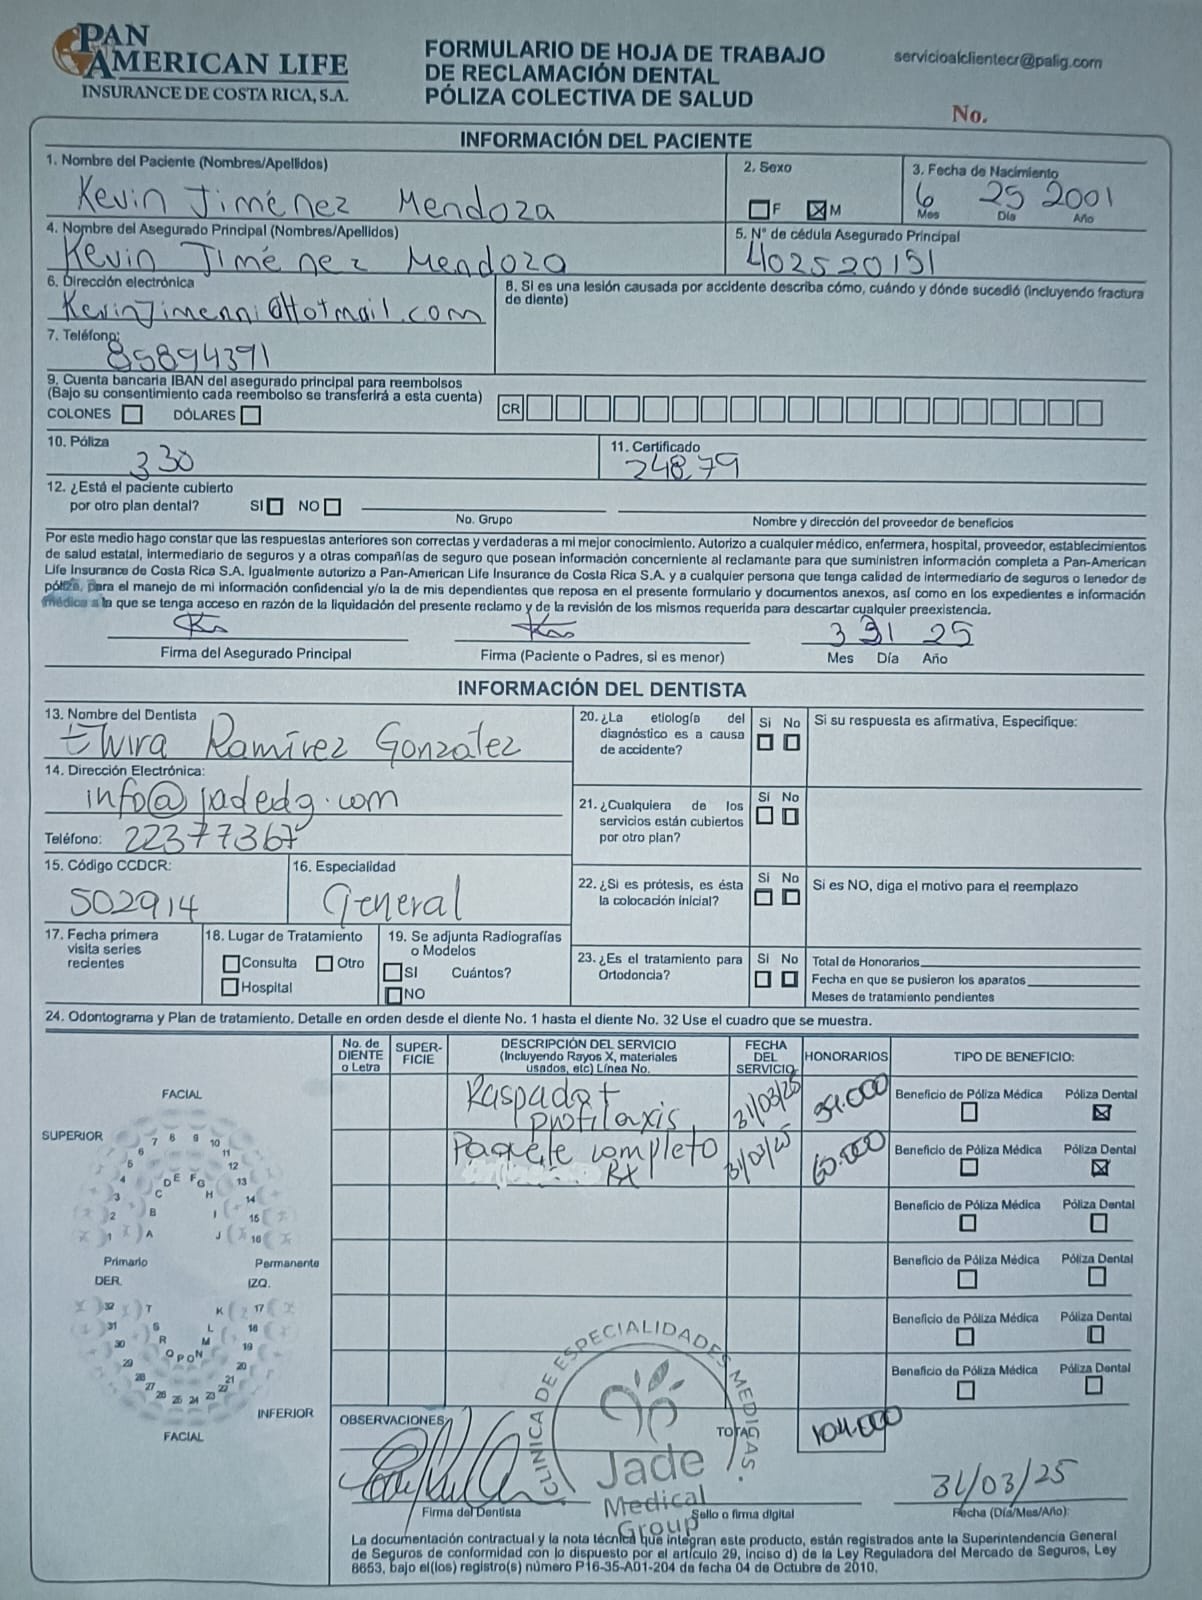 PAN
AMERICAN LIFE
INSURANCE DE COSTA RICA, S.A.
FORMULARIO DE HOJA DE TRABAJO
DE RECLAMACIÓN DENTAL
PÓLIZA COLECTIVA DE SALUD
servicioalclientecr@palig.com
No.
INFORMACIÓN DEL PACIENTE
1. Nombre del Paciente (Nombres/Apellidos)
Kevin Jiménez Mendoza
2. Sexo
F M
3. Fecha de Nacimiento
6 25 2001
Mes Día Año
4. Nombre del Asegurado Principal (Nombres/Apellidos)
Kevin Jiménez Mendoza
5. N° de cédula Asegurado Principal
402520191
6. Dirección electrónica
KevinJimenni@Hotmail.com
7. Teléfono:
85894391
8. Si es una lesión causada por accidente describa cómo, cuándo y dónde sucedió (incluyendo fractura
de diente)
9. Cuenta bancaria IBAN del asegurado principal para reembolsos
(Bajo su consentimiento cada reembolso se transferirá a esta cuenta)
COLONES DÓLARES
CR
10. Póliza
330
11. Certificado
24879
12. ¿Está el paciente cubierto
por otro plan dental? SI NO
No. Grupo
Nombre y dirección del proveedor de beneficios
Por este medio hago constar que las respuestas anteriores son correctas y verdaderas a mi mejor conocimiento. Autorizo a cualquier médico, enfermera, hospital, proveedor, establecimientos
de salud estatal, intermediario de seguros y a otras compañías de seguro que posean información concerniente al reclamante para que suministren información completa a Pan-American
Life Insurance de Costa Rica S.A. Igualmente autorizo a Pan-American Life Insurance de Costa Rica S.A. y a cualquier persona que tenga calidad de intermediario de seguros o tenedor de
póliza, para el manejo de mi información confidencial y/o la de mis dependientes que reposa en el presente formulario y documentos anexos, así como en los expedientes e información
médica a la que se tenga acceso en razón de la liquidación del presente reclamo y de la revisión de los mismos requerida para descartar cualquier preexistencia.
3 31 25
Firma del Asegurado Principal
Firma (Paciente o Padres, si es menor)
Mes Día Año
INFORMACIÓN DEL DENTISTA
13. Nombre del Dentista
Elvira Ramírez González
14. Dirección Electrónica:
info@jadedg.com
Teléfono: 22377367
15. Código CCDCR:
502914
16. Especialidad
General
17. Fecha primera
visita series
recientes
18. Lugar de Tratamiento
Consulta Otro
Hospital
19. Se adjunta Radiografías
o Modelos
SI Cuántos?
NO
20. ¿La etiología del
diagnóstico es a causa
de accidente?
Si No
Si su respuesta es afirmativa, Especifique:
21. ¿Cualquiera de los
servicios están cubiertos
por otro plan?
Si No
22. ¿Si es prótesis, es ésta
la colocación inicial?
Si No
Si es NO, diga el motivo para el reemplazo
23. ¿Es el tratamiento para
Ortodoncia?
Si No
Total de Honorarios
Fecha en que se pusieron los aparatos
Meses de tratamiento pendientes
24. Odontograma y Plan de tratamiento. Detalle en orden desde el diente No. 1 hasta el diente No. 32 Use el cuadro que se muestra.
No. de
DIENTE
o Letra
SUPER-
FICIE
DESCRIPCIÓN DEL SERVICIO
(Incluyendo Rayos X, materiales
usados, etc) Línea No.
FECHA
DEL
SERVICIO
HONORARIOS
TIPO DE BENEFICIO:
Raspado +
profilaxis 31/03/25
Beneficio de Póliza Médica Póliza Dental
Paquete completo 31/03/25 60.000
RX
Beneficio de Póliza Médica Póliza Dental
Beneficio de Póliza Médica Póliza Dental
Beneficio de Póliza Médica Póliza Dental
Beneficio de Póliza Médica Póliza Dental
Beneficio de Póliza Médica Póliza Dental
FACIAL
SUPERIOR
7 8 9 10
6 11
5 12
4 D E F G 13
3 C H 14
2 B I 15
1 A J 16
Primario Permanente
DER. IZQ.
32 T K 17
31 S L 18
30 R M 19
29 Q P O N 20
28 21
27 22
26 25 24 23
INFERIOR
FACIAL
OBSERVACIONES
TOTAL
CLINICA DE ESPECIALIDADES MEDICAS.
Jade
Medical
Group
31/03/25
Firma del Dentista
Sello o firma digital
Fecha (Día/Mes/Año):
La documentación contractual y la nota técnica que integran este producto, están registrados ante la Superintendencia General
de Seguros de conformidad con lo dispuesto por el artículo 29, inciso d) de la Ley Reguladora del Mercado de Seguros, Ley
8653, bajo el(los) registro(s) número P16-35-A01-204 de fecha 04 de Octubre de 2010.